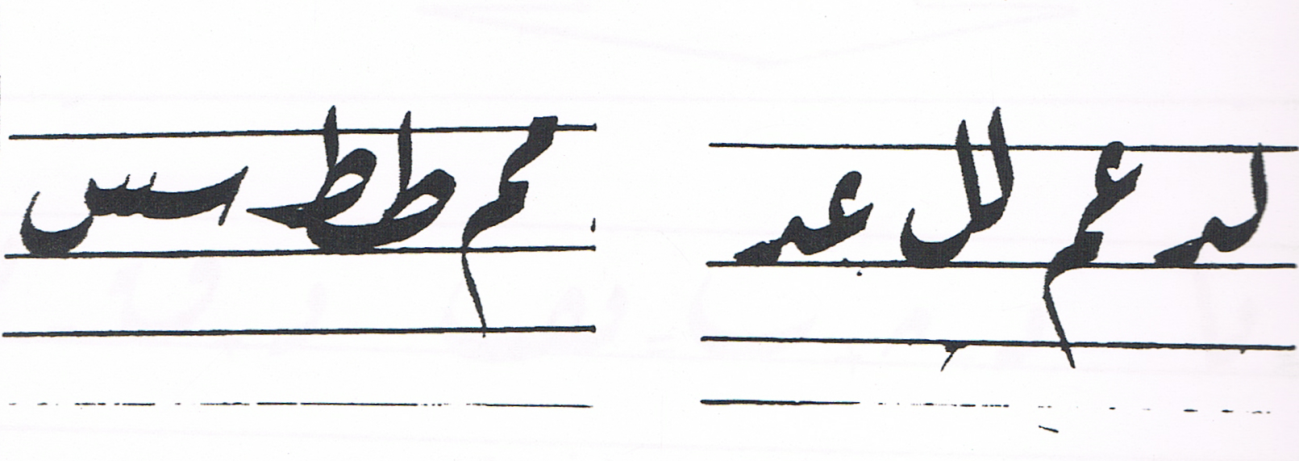 لد عم لل عد
مم طط سس